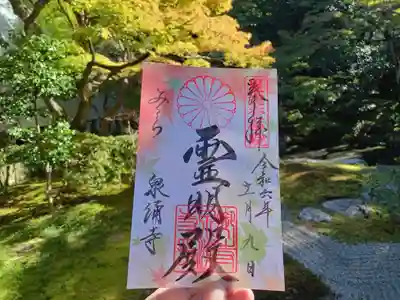 奉拝
令和六年
十一月九日
霊明殿
みてら
泉涌寺